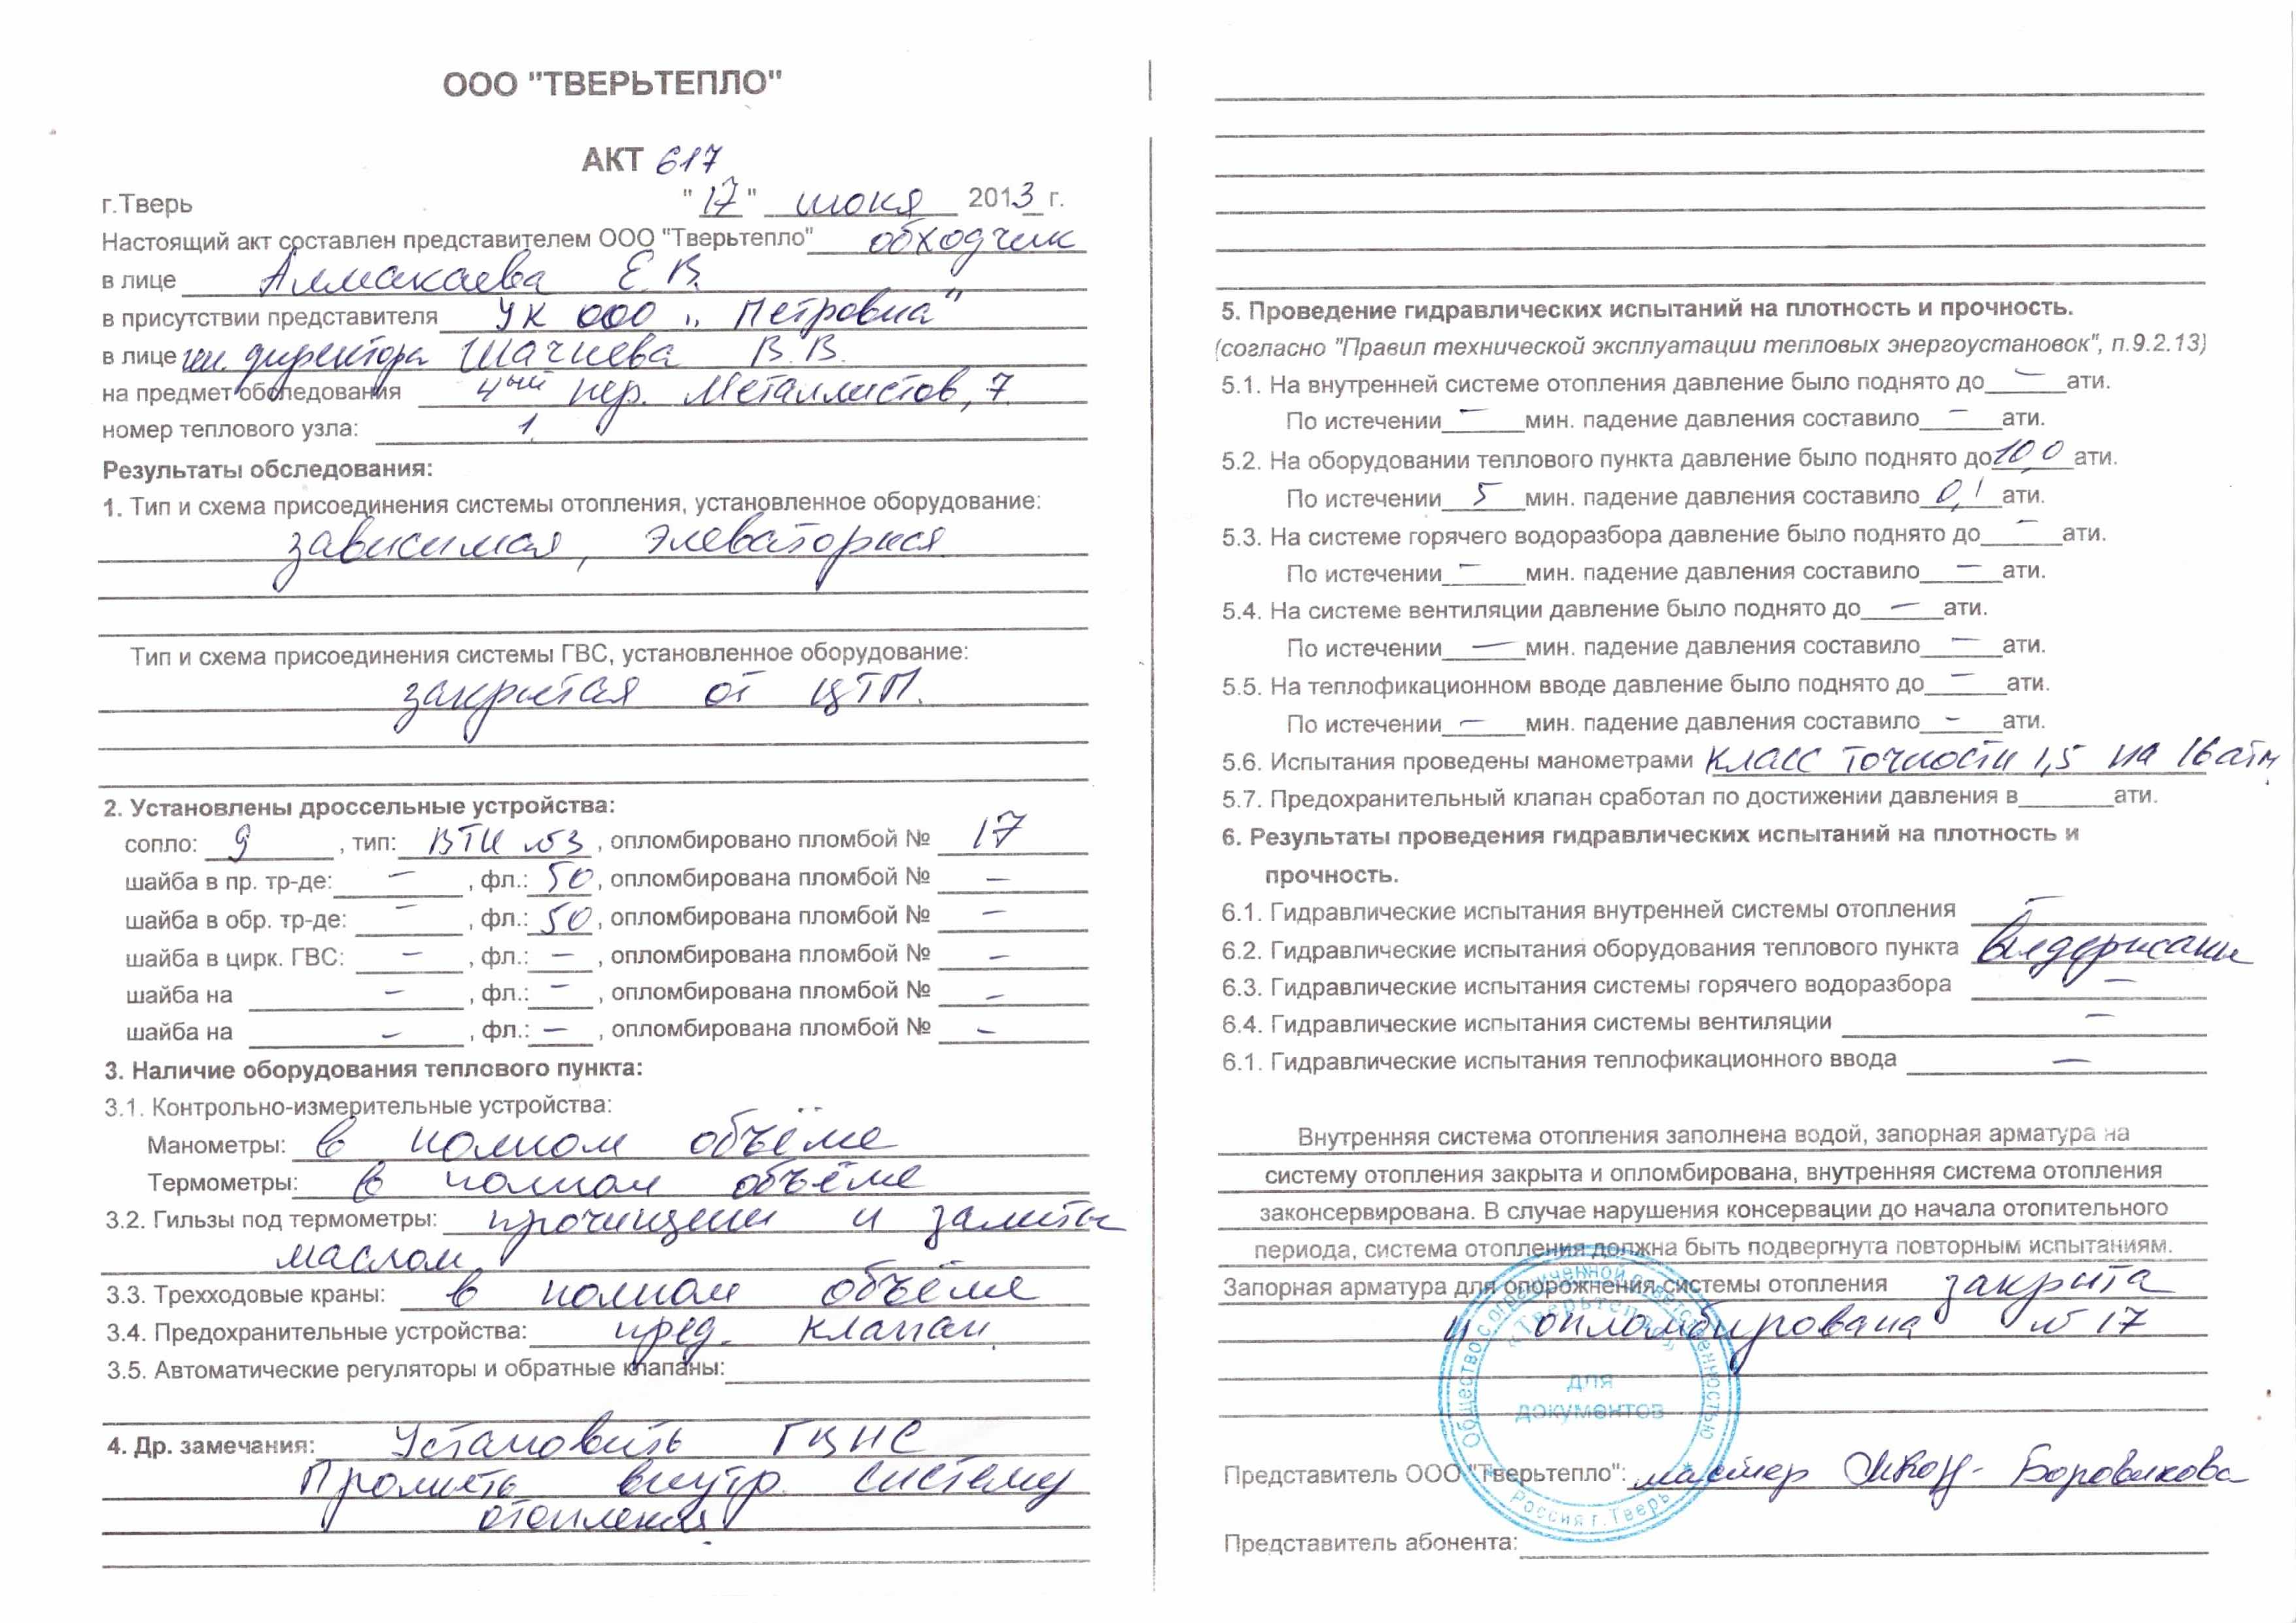 ООО "ТВЕРЬТЕПЛО"
АКТ 617
г.Тверь " 17 " июня 2013 г.
Настоящий акт составлен представителем ООО "Тверьтепло" обходчик
в лице Алмакаева Е.В.
в присутствии представителя УК ООО „Петровна"
в лице ген. директора В.В.
на предмет обследования 4ый пер. Металлистов, 7
номер теплового узла: 1
Результаты обследования:
1. Тип и схема присоединения системы отопления, установленное оборудование:
зависимая, элеваторная
Тип и схема присоединения системы ГВС, установленное оборудование:
закрытая от ЦТП.
2. Установлены дроссельные устройства:
сопло: 9 , тип: ВТИ №3 , опломбировано пломбой № 17
шайба в пр. тр-де: – , фл.: 50 , опломбирована пломбой № –
шайба в обр. тр-де: – , фл.: 50 , опломбирована пломбой № –
шайба в цирк. ГВС: – , фл.: – , опломбирована пломбой № –
шайба на – , фл.: – , опломбирована пломбой № –
шайба на – , фл.: – , опломбирована пломбой № –
3. Наличие оборудования теплового пункта:
3.1. Контрольно-измерительные устройства:
Манометры: в полном объёме
Термометры: в полном объёме
3.2. Гильзы под термометры: прочищены и залиты
маслом
3.3. Трехходовые краны: в полном объёме
3.4. Предохранительные устройства: пред. клапан
3.5. Автоматические регуляторы и обратные клапаны:
4. Др. замечания: Установить
Промыть внутр. систему
отопления
5. Проведение гидравлических испытаний на плотность и прочность.
(согласно "Правил технической эксплуатации тепловых энергоустановок", п.9.2.13)
5.1. На внутренней системе отопления давление было поднято до – ати.
По истечении – мин. падение давления составило – ати.
5.2. На оборудовании теплового пункта давление было поднято до 10,0 ати.
По истечении 5 мин. падение давления составило 0,1 ати.
5.3. На системе горячего водоразбора давление было поднято до – ати.
По истечении – мин. падение давления составило – ати.
5.4. На системе вентиляции давление было поднято до – ати.
По истечении – мин. падение давления составило – ати.
5.5. На теплофикационном вводе давление было поднято до – ати.
По истечении – мин. падение давления составило – ати.
5.6. Испытания проведены манометрами класс точности 1,5 на 16 атм
5.7. Предохранительный клапан сработал по достижении давления в ати.
6. Результаты проведения гидравлических испытаний на плотность и
прочность.
6.1. Гидравлические испытания внутренней системы отопления –
6.2. Гидравлические испытания оборудования теплового пункта выдержаны
6.3. Гидравлические испытания системы горячего водоразбора –
6.4. Гидравлические испытания системы вентиляции –
6.1. Гидравлические испытания теплофикационного ввода –
Внутренняя система отопления заполнена водой, запорная арматура на
систему отопления закрыта и опломбирована, внутренняя система отопления
законсервирована. В случае нарушения консервации до начала отопительного
периода, система отопления должна быть подвергнута повторным испытаниям.
Запорная арматура для опорожнения системы отопления закрыта
и опломбирована №17
Общество с ограниченной ответственностью
«Тверьтепло»
для
документов
Россия г. Тверь
Представитель ООО "Тверьтепло": мастер Боровикова
Представитель абонента: